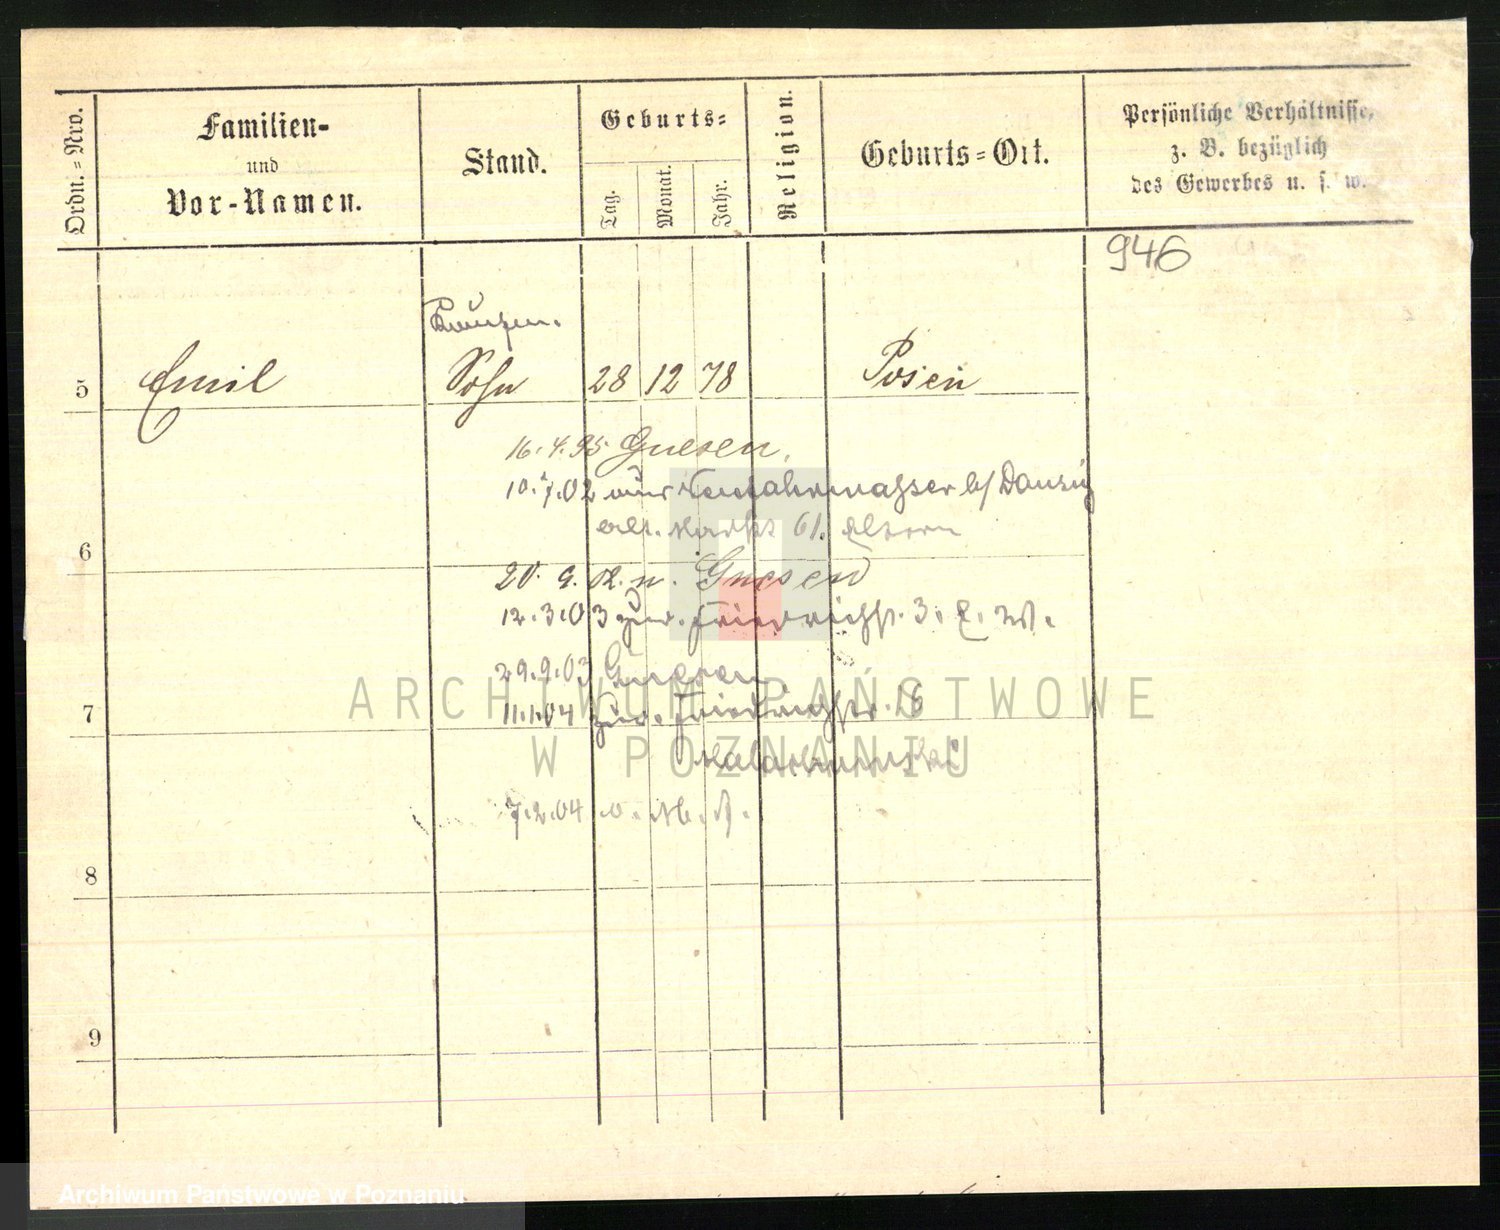 Ordn.=Nro.
Familien-
und
Vor-Namen.
Stand.
Geburts=
Tag.
Monat.
Jahr.
Religion.
Geburts=Ort.
Persönliche Verhältnisse,
z. B. bezüglich
des Gewerbes u. s. w.
946
5 Emil Sohn 28 12 78 Posen
16.4.95 Gnesen.
10.7.02 aus Neufahrwasser b/ Danzig
alt. Markt 61. Eltern
6
20. 9. 02. n. Gnesen
12.3.03 zur. Friedrichstr. 3. E. W.
29.9.03 Gnesen
7
11.1.04 zur. Friedrichstr. 16
7.2.04
8
9
ARCHIWUM PAŃSTWOWE
W POZNANIU
Archiwum Państwowe w Poznaniu